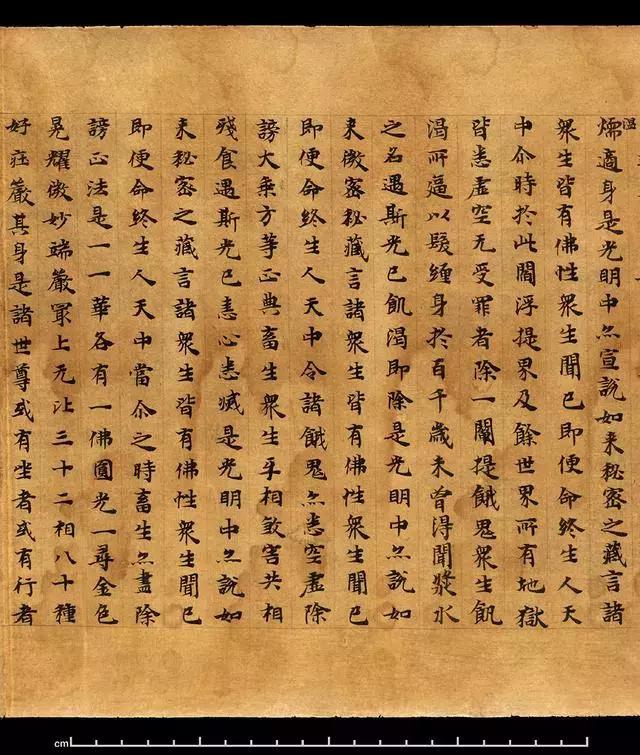 温
燸適身是光明中亦宣說如来秘密之藏言諸
衆生皆有佛性衆生聞已即便命終生人天
中尒時於此閻浮提界及餘世界所有地獄
皆悉虛空无受罪者除一闡提餓鬼衆生飢
渴所逼以髮纏身於百千歲未曾得聞漿水
之名遇斯光已飢渴即除是光明中亦說如
来微密秘藏言諸衆生皆有佛性衆生聞已
即便命終生人天中令諸餓鬼亦悉空虛除
謗大乗方等正典畜生衆生互相煞害共相
殘食遇斯光已恚心悉滅是光明中亦說如
来秘密之藏言諸衆生皆有佛性衆生聞已
即便命終生人天中當尒之時畜生亦盡除
謗正法是一一華各有一佛圓光一尋金色
晃耀微妙端嚴冣上无比三十二相八十種
好莊嚴其身是諸世尊或有坐者或有行者
cm